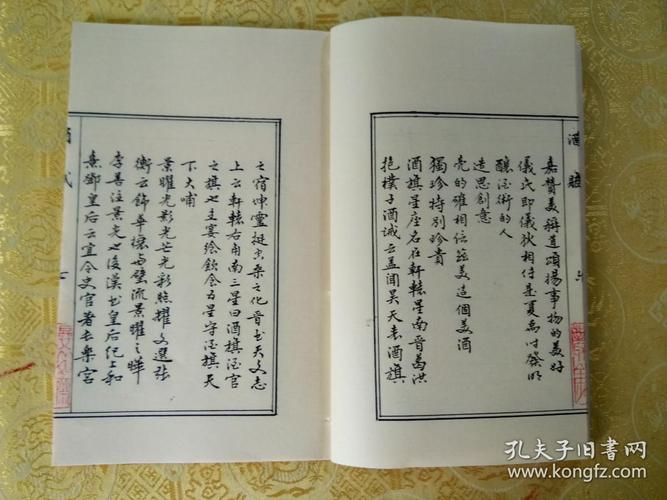 嘉贊美稱道頌揚事物的美好
儀氏即儀狄相傳是夏禹時發明
釀酒術的人
造思創意
亮的確相信茲美這個美酒
獨珍特別珍貴
酒旗星座名在軒轅星南晉葛洪
抱樸子酒誡云蓋聞昊天表酒旗
六
之宿坤靈挺空桑之化晉書天文志
上云軒轅右角南三星曰酒旗酒官
之旗也主宴饗飲食五星守酒旗天
下大酺
景曜光影光芒光彩照耀文選張
衡云飾華榱與璧流景曜之韡
李善注景光也後漢書皇后紀上和
熹鄧皇后云宜令史官著長樂宮
七
孔夫子旧书网
www.kongfz.com